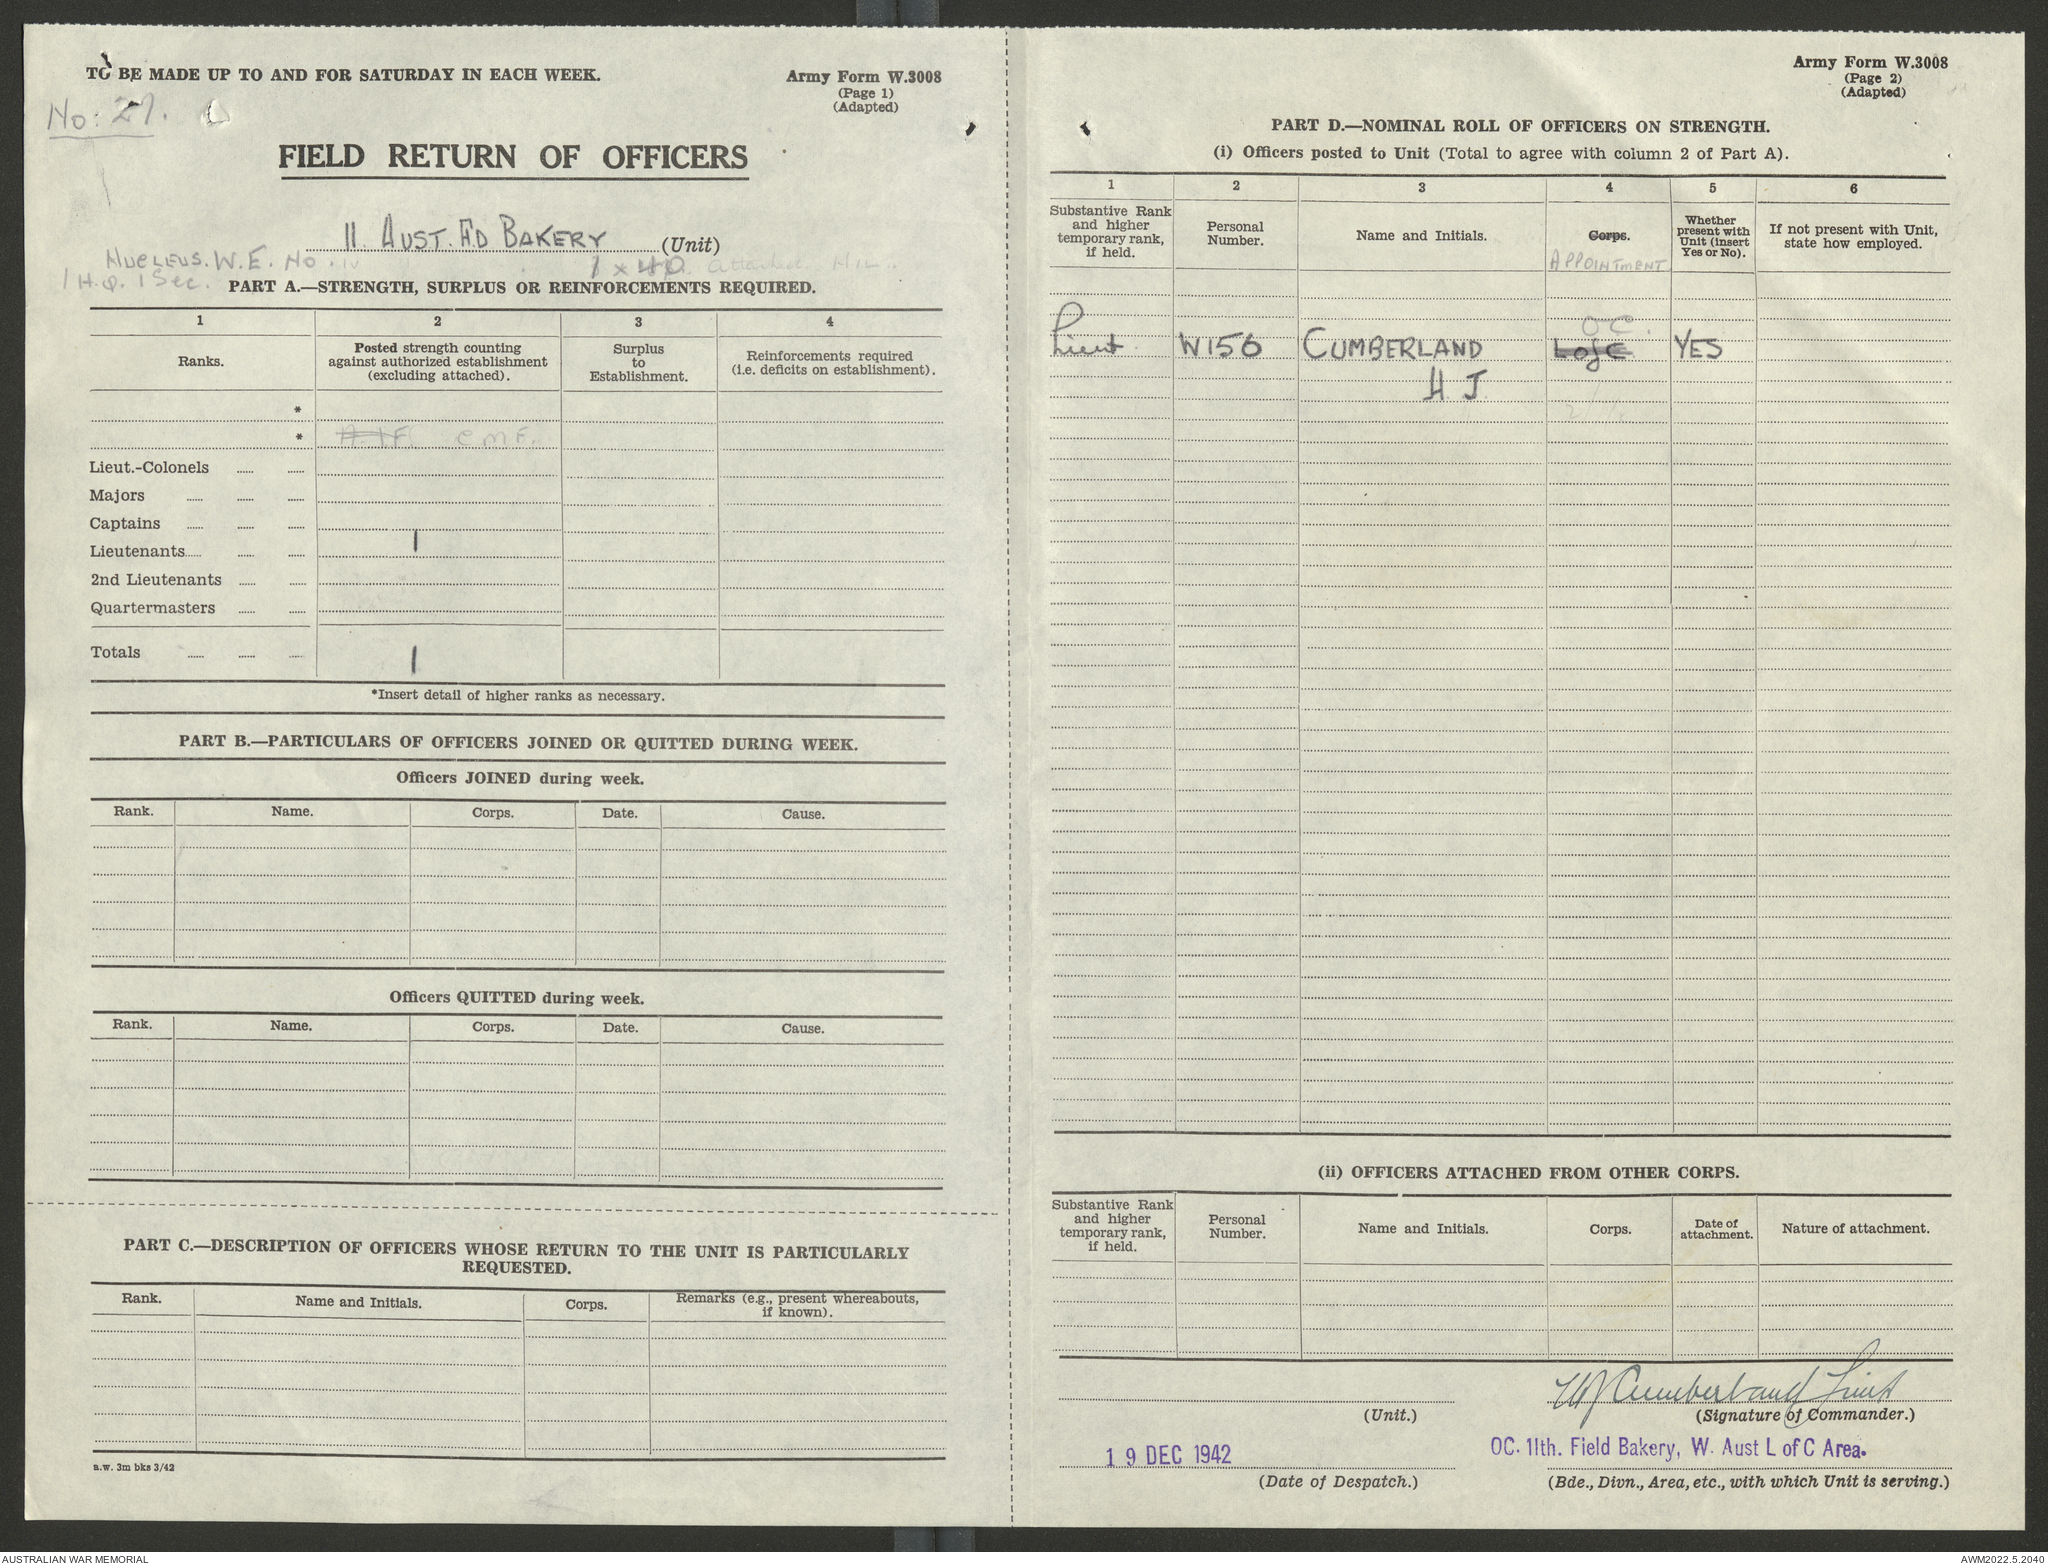 TO BE MADE UP TO AND FOR SATURDAY IN EACH WEEK.
Army Form W.3008
(Page 1)
(Adapted)
No: 27.
FIELD RETURN OF OFFICERS
11. AUST. FD BAKERY (Unit)
NUCLEUS. W.E. No.
1 x 40 attached
1 H.Q. 1 Sec.
PART A.—STRENGTH, SURPLUS OR REINFORCEMENTS REQUIRED.
1 2 3 4
Ranks. Posted strength counting against authorized establishment (excluding attached). Surplus to Establishment. Reinforcements required (i.e. deficits on establishment).
*
* A.I.F. C.M.F.
Lieut.-Colonels
Majors
Captains
Lieutenants 1
2nd Lieutenants
Quartermasters
Totals 1
*Insert detail of higher ranks as necessary.
PART B.—PARTICULARS OF OFFICERS JOINED OR QUITTED DURING WEEK.
Officers JOINED during week.
Rank. Name. Corps. Date. Cause.
Officers QUITTED during week.
Rank. Name. Corps. Date. Cause.
PART C.—DESCRIPTION OF OFFICERS WHOSE RETURN TO THE UNIT IS PARTICULARLY
REQUESTED.
Rank. Name and Initials. Corps. Remarks (e.g., present whereabouts, if known).
a.w. 3m bks 3/42
Army Form W.3008
(Page 2)
(Adapted)
PART D.—NOMINAL ROLL OF OFFICERS ON STRENGTH.
(i) Officers posted to Unit (Total to agree with column 2 of Part A).
1 2 3 4 5 6
Substantive Rank and higher temporary rank, if held. Personal Number. Name and Initials. Corps. APPOINTMENT Whether present with Unit (insert Yes or No). If not present with Unit, state how employed.
O.C.
Lieut. W156 CUMBERLAND L of C YES
H. J.
(ii) OFFICERS ATTACHED FROM OTHER CORPS.
Substantive Rank and higher temporary rank, if held. Personal Number. Name and Initials. Corps. Date of attachment. Nature of attachment.
HJ Cumberland Lieut
(Unit.) (Signature of Commander.)
19 DEC 1942 OC. 11th. Field Bakery, W. Aust L of C Area.
(Date of Despatch.) (Bde., Divn., Area, etc., with which Unit is serving.)
AUSTRALIAN WAR MEMORIAL
AWM2022.5.2040